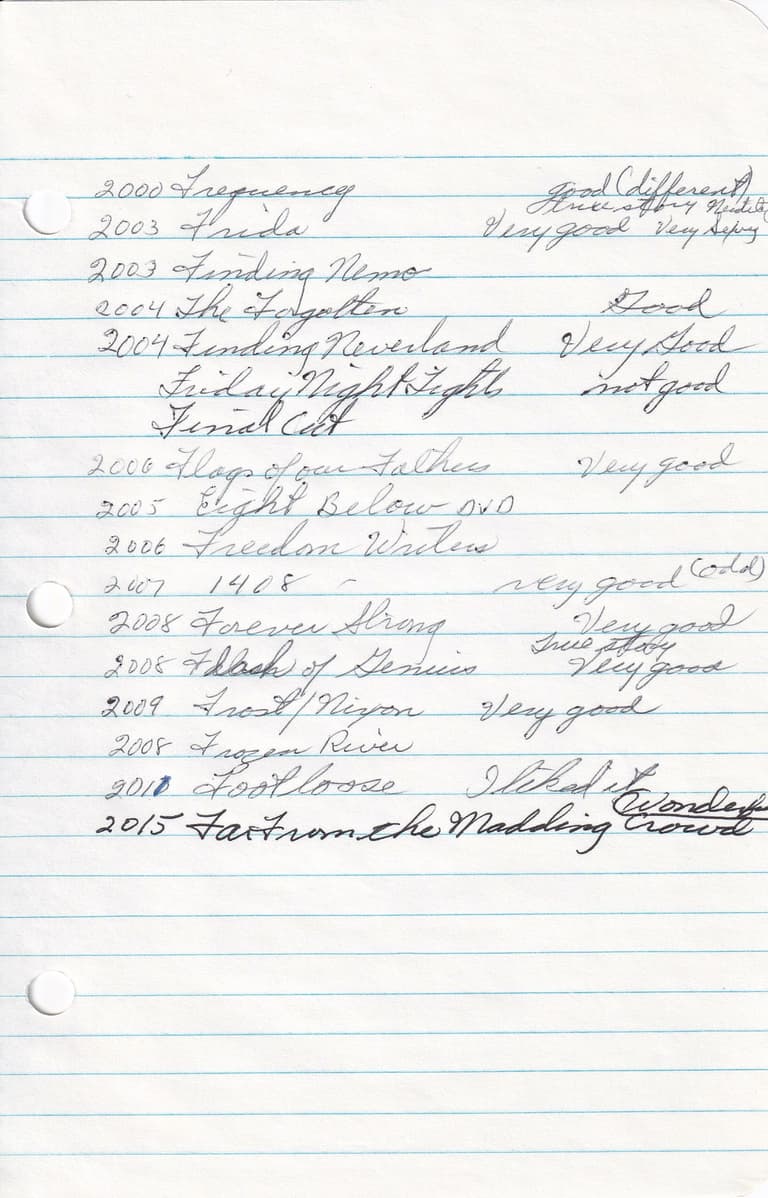 2000 Frequency good (different)
true story Nudity
2003 Frida Very good Very sexy
2003 Finding Nemo
2004 The Forgotten Good
2004 Finding Neverland Very Good
Friday Night Fights not good
Final Cut
2006 Flags of our Fathers Very good
2005 Eight Below DVD
2006 Freedom Writers
2007 1408 - very good (odd)
2008 Forever Strong Very good
True story
2008 Flash of Genius Very good
2009 Frost/Nixon Very good
2008 Frozen River
2011 Footloose I liked it
Wonderful
2015 Far From the Madding Crowd